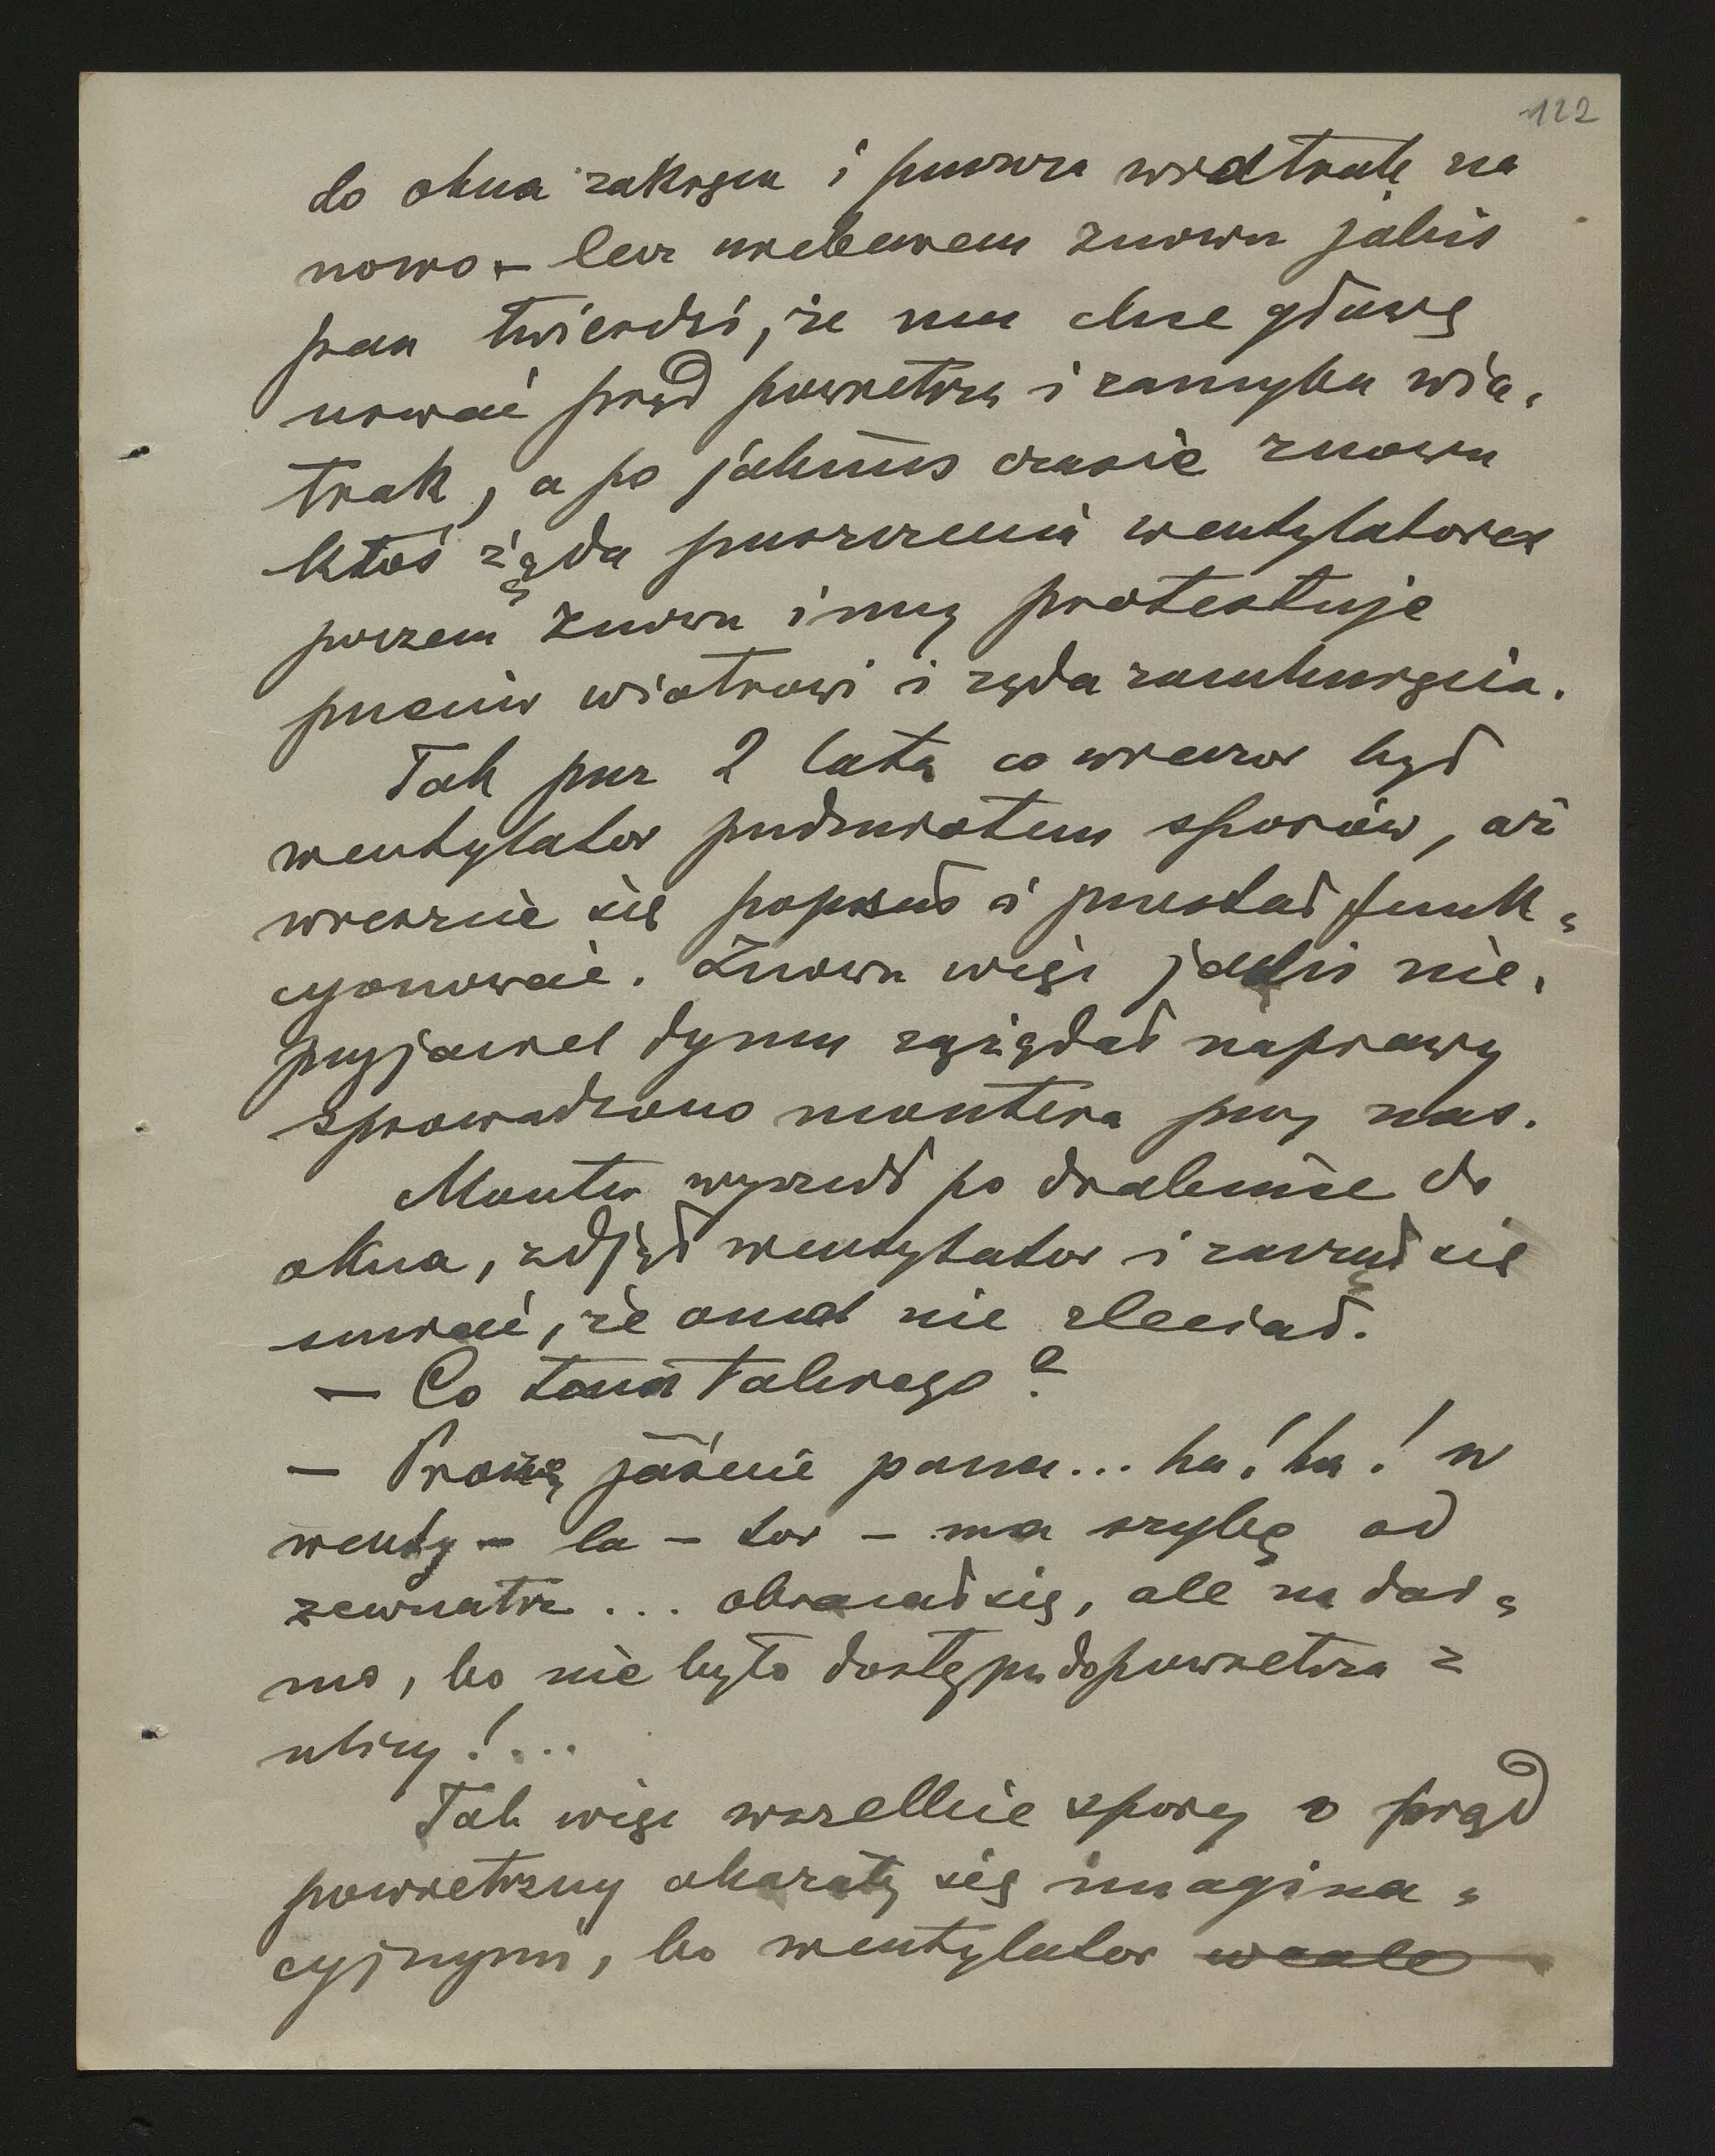 122
do okna zakręca i puszcza wiatrak na
nowo – lecz niebawem znowu jakiś
pan twierdzi, że mu chce głowę
urwać prąd powietrza i zamyka wia-
trak, a po jakimś czasie znowu
ktoś żąda puszczenia wentylatora
poczem znowu inny protestuje
przeciw wiatrowi i żąda zamknięcia.
Tak przez 2 lata co wieczór był
wentylator przedmiotem sporów, aż
wreszcie się popsuł i przestał funk-
cyonować. Znowu więc jakiś nie-
przyjaciel dymu zażądał naprawy
sprowadzono montera przy nas.
Monter wyszedł po drabinie do
okna, zdjął wentylator i zaczął się
śmiać, że omal nie zleciał.
– Co tam takiego?
– Proszę jaśnie pana... ha! ha! w
wenty – la – tor – ma szybę od
zewnątrz... obracał się, ale na dar-
mo, bo nie było dostępu do powietrza z
ulicy!...
Tak więc wszelkie spory o prąd
powietrzny okazały się imagina-
cyjnymi, bo wentylator wcale